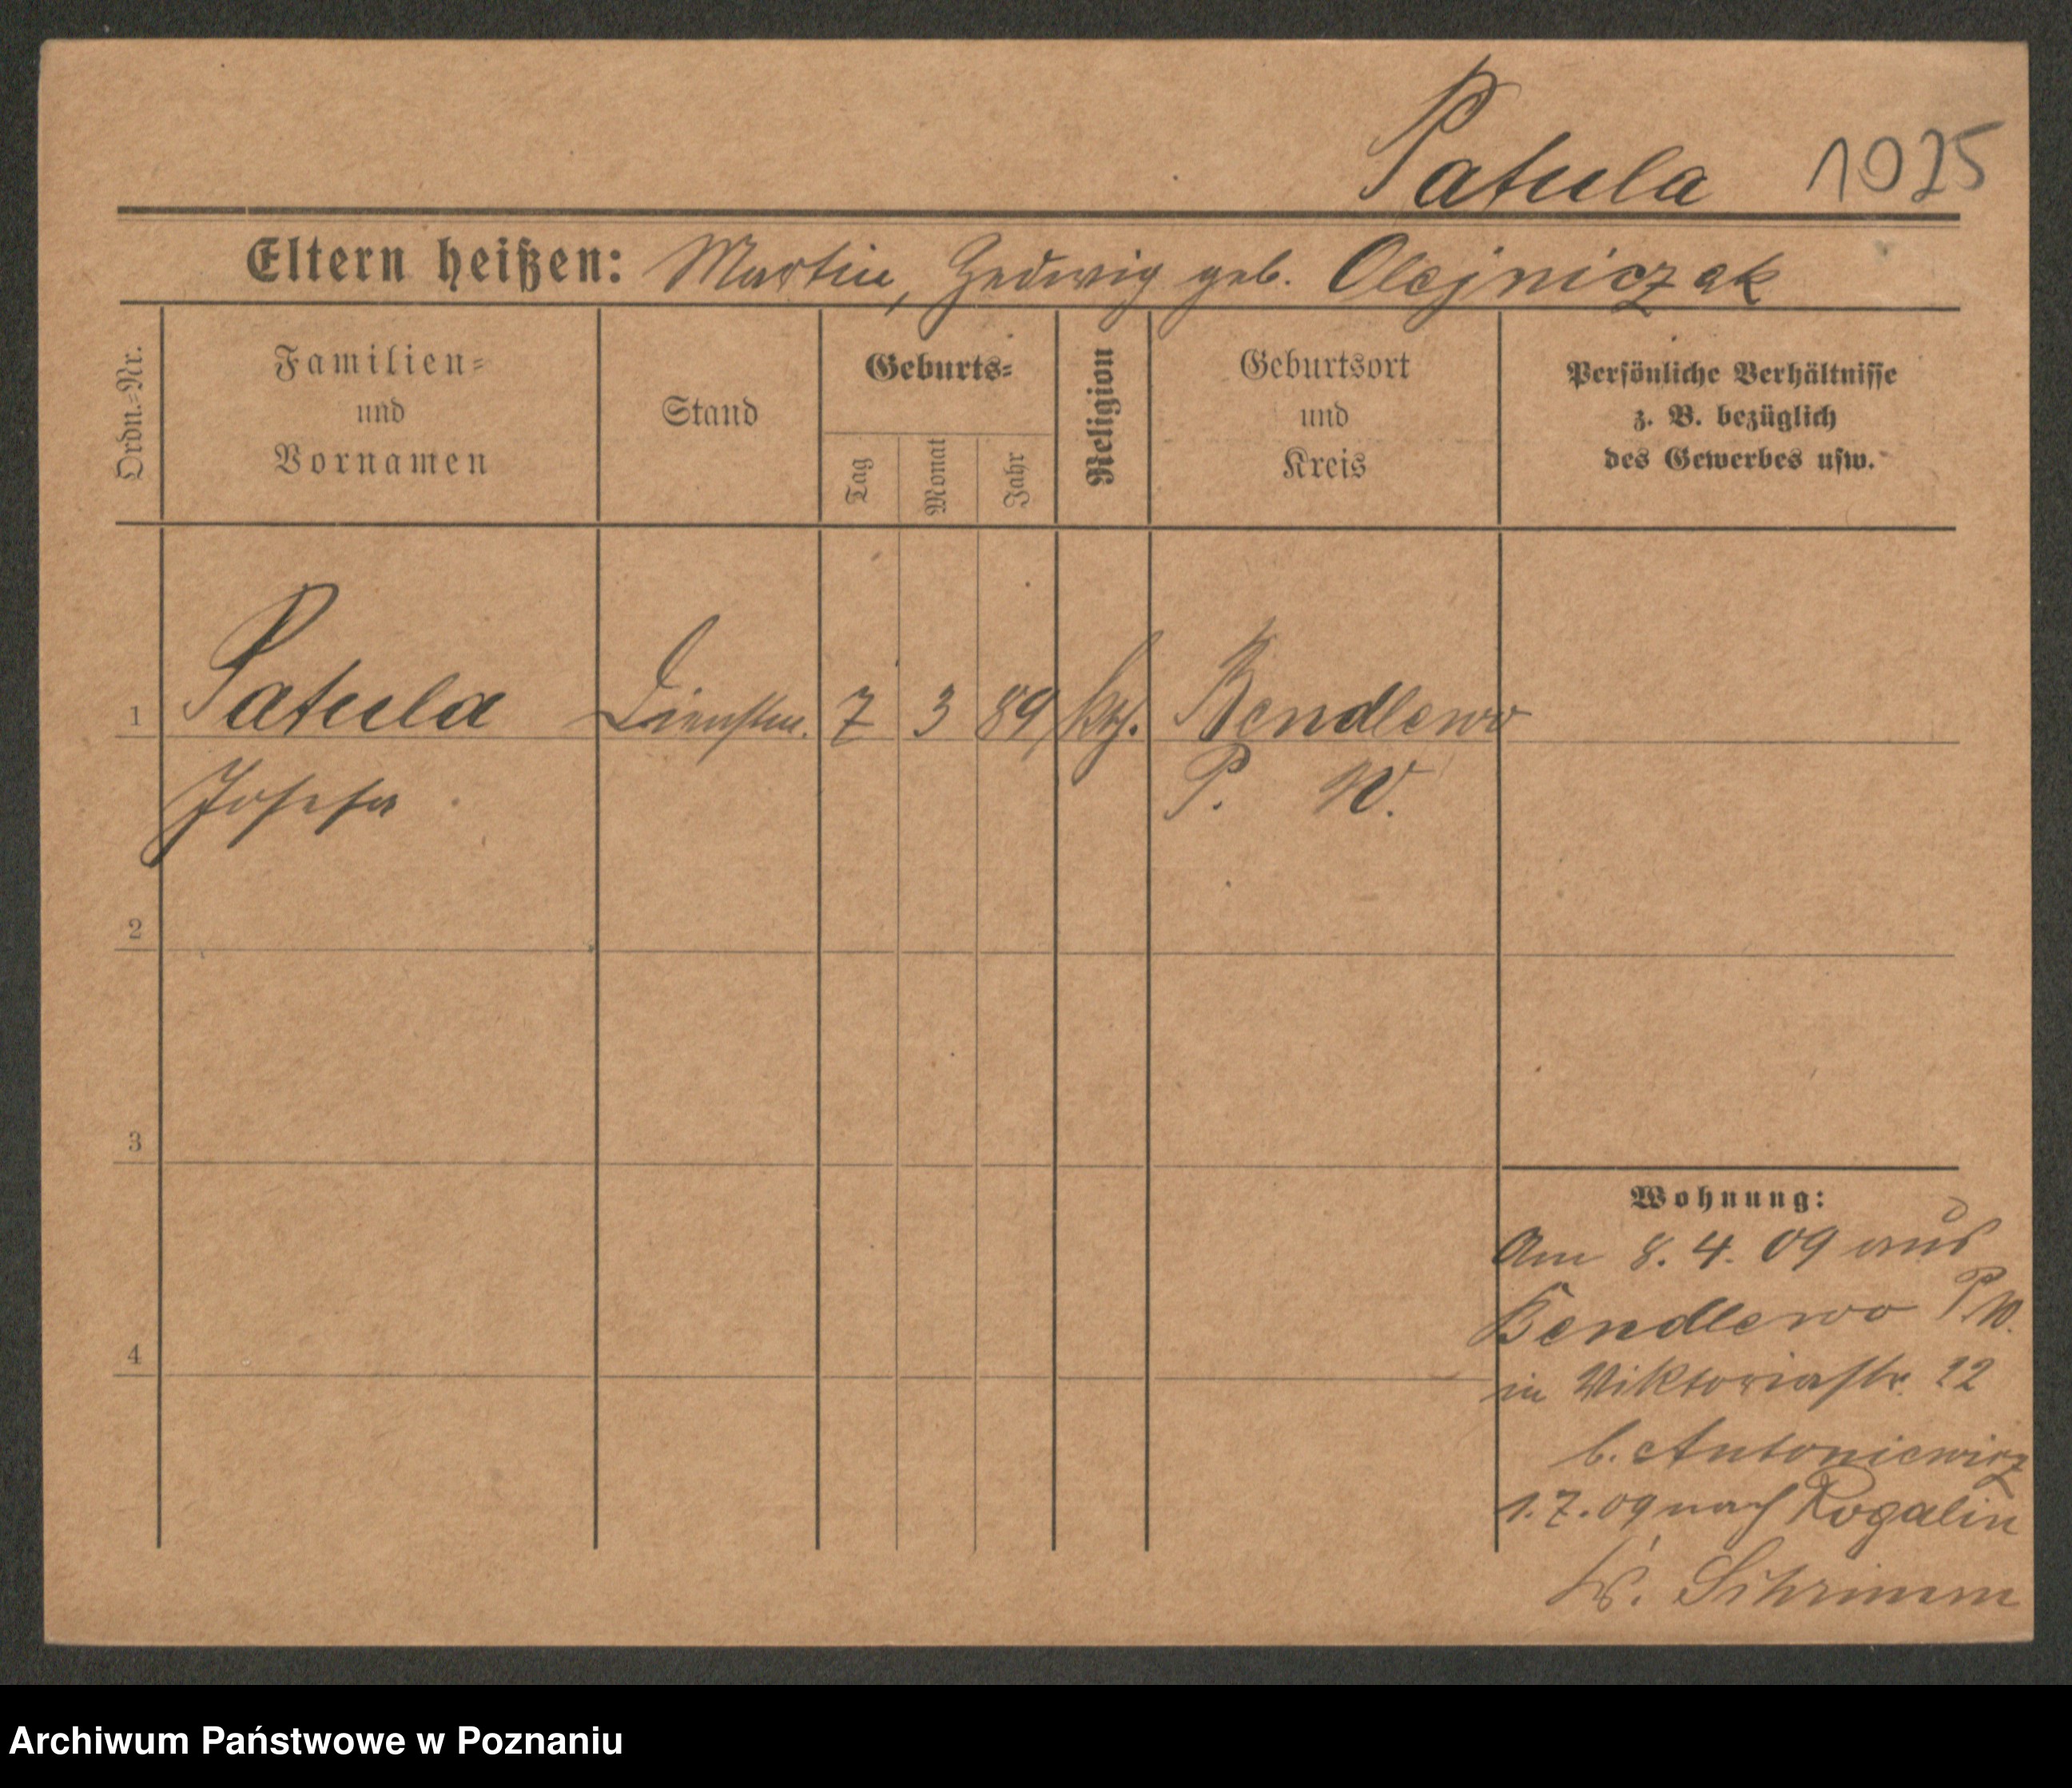 Patula 1025
Eltern heißen: Martin, Hedwig geb. Olejniczak
Ordn.-Nr.
Familien-
und
Vornamen
Stand
Geburts-
Tag
Monat
Jahr
Religion
Geburtsort
und
Kreis
Persönliche Verhältnisse
z. B. bezüglich
des Gewerbes usw.
1 Patula Dienstm. 7 3 89 kth. Bendlewo
Josefa P. W.
2
3
4
Wohnung:
Am 8.4.09 aus
Bendlewo P.W.
in Viktoriastr. 22
b. Antoniewicz
1.7.09 nach Rogalin
Kr. Schrimm
Archiwum Państwowe w Poznaniu